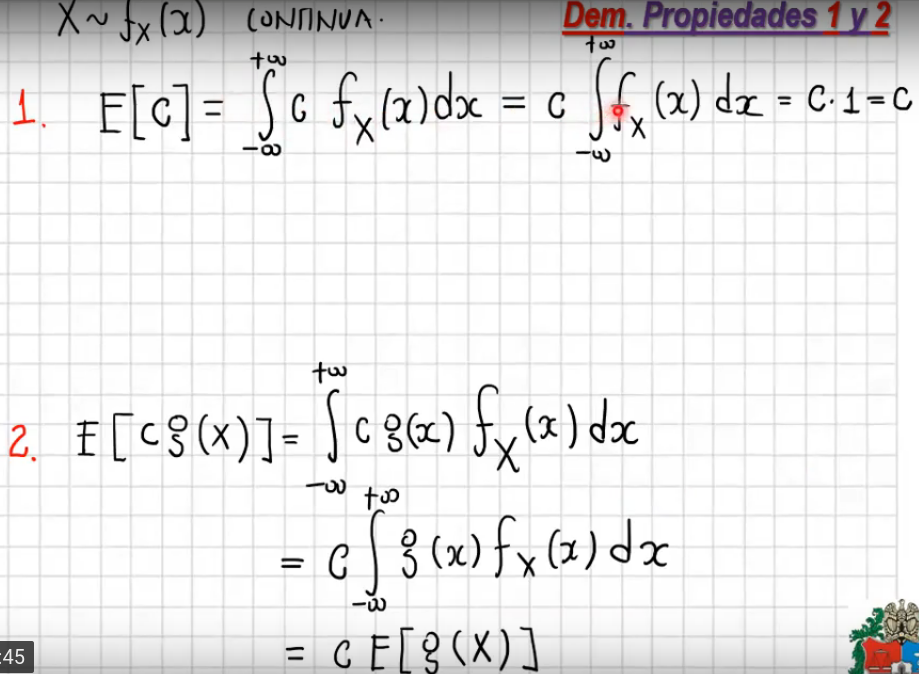 X ~ f_X(x) CONTINUA.
Dem. Propiedades 1 y 2
1. E[C] = ∫_{-∞}^{+∞} c f_X(x) dx = c ∫_{-∞}^{+∞} f_X(x) dx = C·1 = C
2. E[c g(X)] = ∫_{-∞}^{+∞} c g(x) f_X(x) dx
= C ∫_{-∞}^{+∞} g(x) f_X(x) dx
= C E[g(X)]
:45